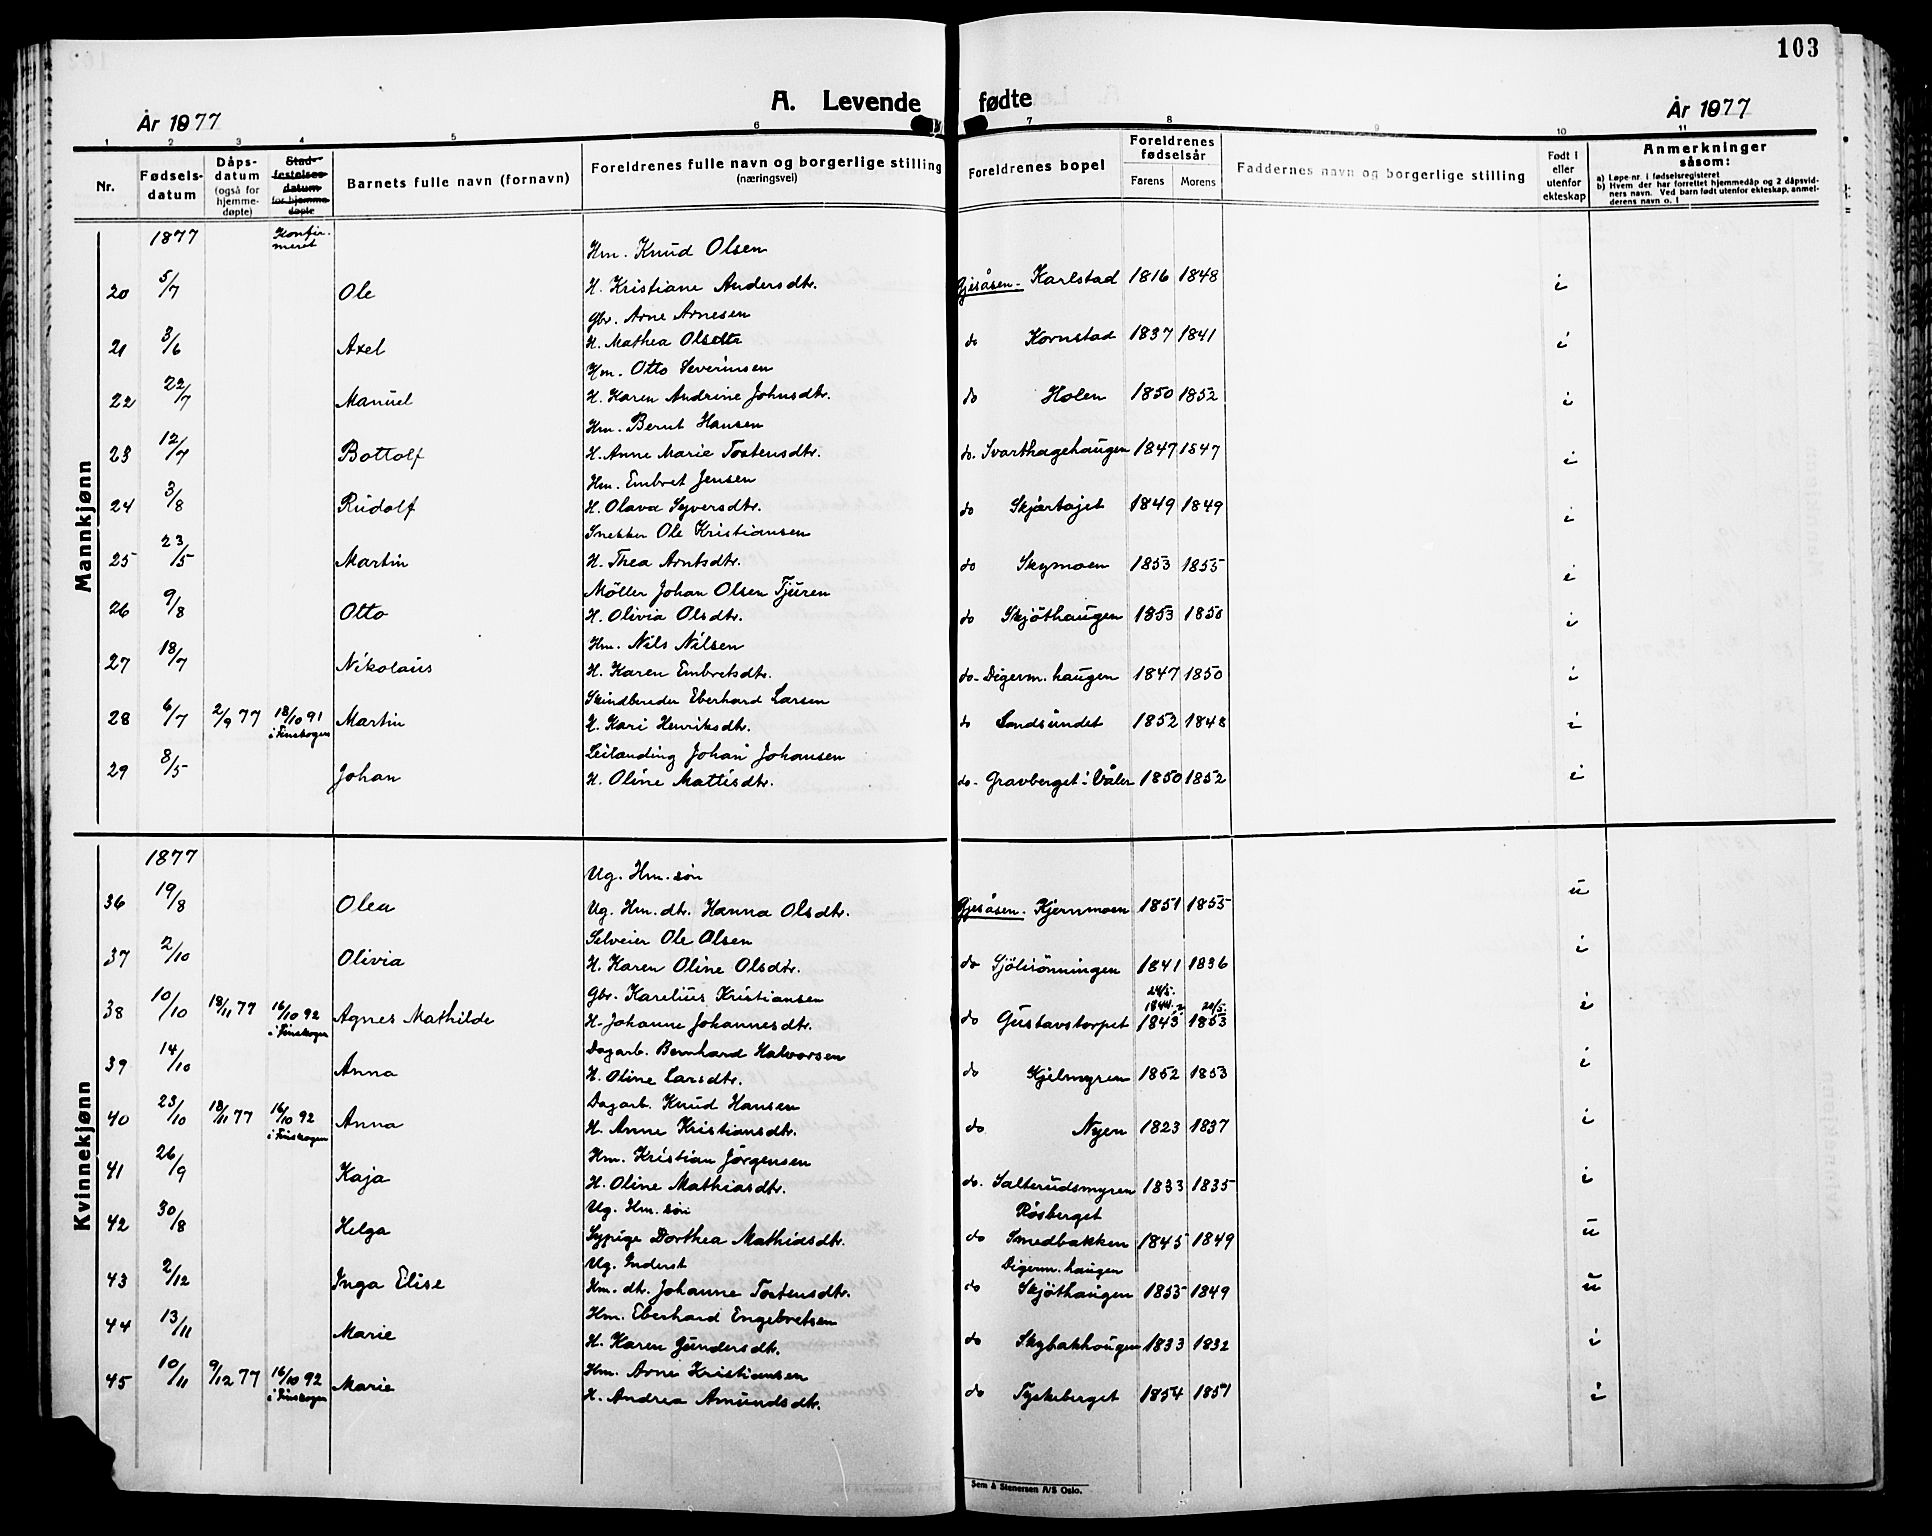 103
A. Levende fødte
År 1877
År 1877
1 2 3 4 5 6 7 8 9 10 11
Nr.
Fødsels-
datum
Dåps-
datum
(også for
hjemme-
døpte)
Stad-
festelses-
datum
for hjemme-
døpte
Barnets fulle navn (fornavn)
Foreldrenes fulle navn og borgerlige stilling
(næringsvei)
Foreldrenes bopel
Foreldrenes
fødselsår
Farens Morens
Faddernes navn og borgerlige stilling
Født i
eller
utenfor
ekteskap
Anmerkninger
såsom:
a) Løpe-nr. i fødselsregisteret
b) Hvem der har forrettet hjemmedåp og 2 dåpsvid-
ners navn. Ved barn født utenfor ekteskap, anmel-
derens navn o. l
Mannkjønn
1877 Konfir-
meret
Hm. Knud Olsen
20 5/7 Ole H. Kristiane Andersdtr. Gjesåsen. Karlstad 1816 1848 i
Gbr. Arne Arnesen
21 3/6 Axel H. Mathea Olsdtr do Kornstad 1837 1841 i
Hm. Otto Severinsen
22 22/7 Manuel H. Karen Andrine Johnsdtr. do Holen 1850 1852 i
Hm. Bernt Hansen
23 12/7 Bottolf H. Anne Marie Tostensdtr. do. Svarthagehaugen 1847 1847 i
Hm. Embret Jensen
24 3/8 Rudolf H. Olava Syversdtr. do Skjærtajet 1849 1849 i
Snekker Ole Kristiansen
25 23/5 Martin H. Thea Arntsdtr. do Skymoen 1853 1855 i
Møller Johan Olsen Tjuren
26 9/8 Otto H. Olivia Olsdtr. do Skjöthaugen 1853 1850 i
Hm. Nils Nilsen
27 18/7 Nikolaus H. Karen Embretsdtr. do- Digerm. haugen 1847 1850 i
Skindbereder Eberhard Larsen
28 6/7 2/9 77 18/10 91 Martin H. Kari Henriksdtr. do Sandsundet 1852 1848 i
i Finskogen
Leilænding Johan Johansen
29 8/5 Johan H. Oline Mattisdtr. do- Gravberget i Våler 1850 1852 i
Kvinnekjønn
1877
Ug. Hm. sön
36 19/8 Olea Ug. Hm. dtr. Hanna Olsdtr. Gjesåsen. Kjernmoen 1851 1855 u
Selveier Ole Olsen
37 2/10 Olivia H. Karen Oline Olsdtr. do Sjölirönningen 1841 1836 i
Gbr. Karelius Kristiansen 24/5. 1844? 24/5.
38 10/10 18/11 77 16/10 92 Agnes Mathilde H. Johanne Johannesdtr. do Gustavstorpet 1843 1853 i
i Finskogen
Dagarb. Bernhard Halvorsen
39 14/10 Anna H. Oline Larsdtr. do Kjelmyren 1852 1853 i
Dagarb. Knud Hansen
40 23/10 18/11 77 16/10 92 Anna H. Anne Kristiansdtr. do Nyen 1823 1837 i
i Finskogen
Hm. Kristian Jörgensen
41 26/9 Kaja H. Oline Mathiasdtr. do. Salterudsmyren 1833 1835 i
Ug. Hm. sön Rösberget
42 30/8 Helga Sypige Dorthea Mathiasdtr. do Smedbakken 1845 1849 u
Ug. Inderst Digerm. haugen
43 2/12 Inga Elise Hm. dtr. Johanne Tostensdtr. do Skjöthaugen 1855 1849 u
Hm. Eberhard Engebretsen
44 13/11 Marie H. Karen Gundersdtr. do Skybakhaugen 1833 1832 i
Hm. Arne Kristiansen
45 10/11 9/12 77 16/10 92 Marie H. Andrea Amundsdtr. do Tyskeberget 1854 1851 i
i Finskogen
Sem & Stenersen A/S Oslo.